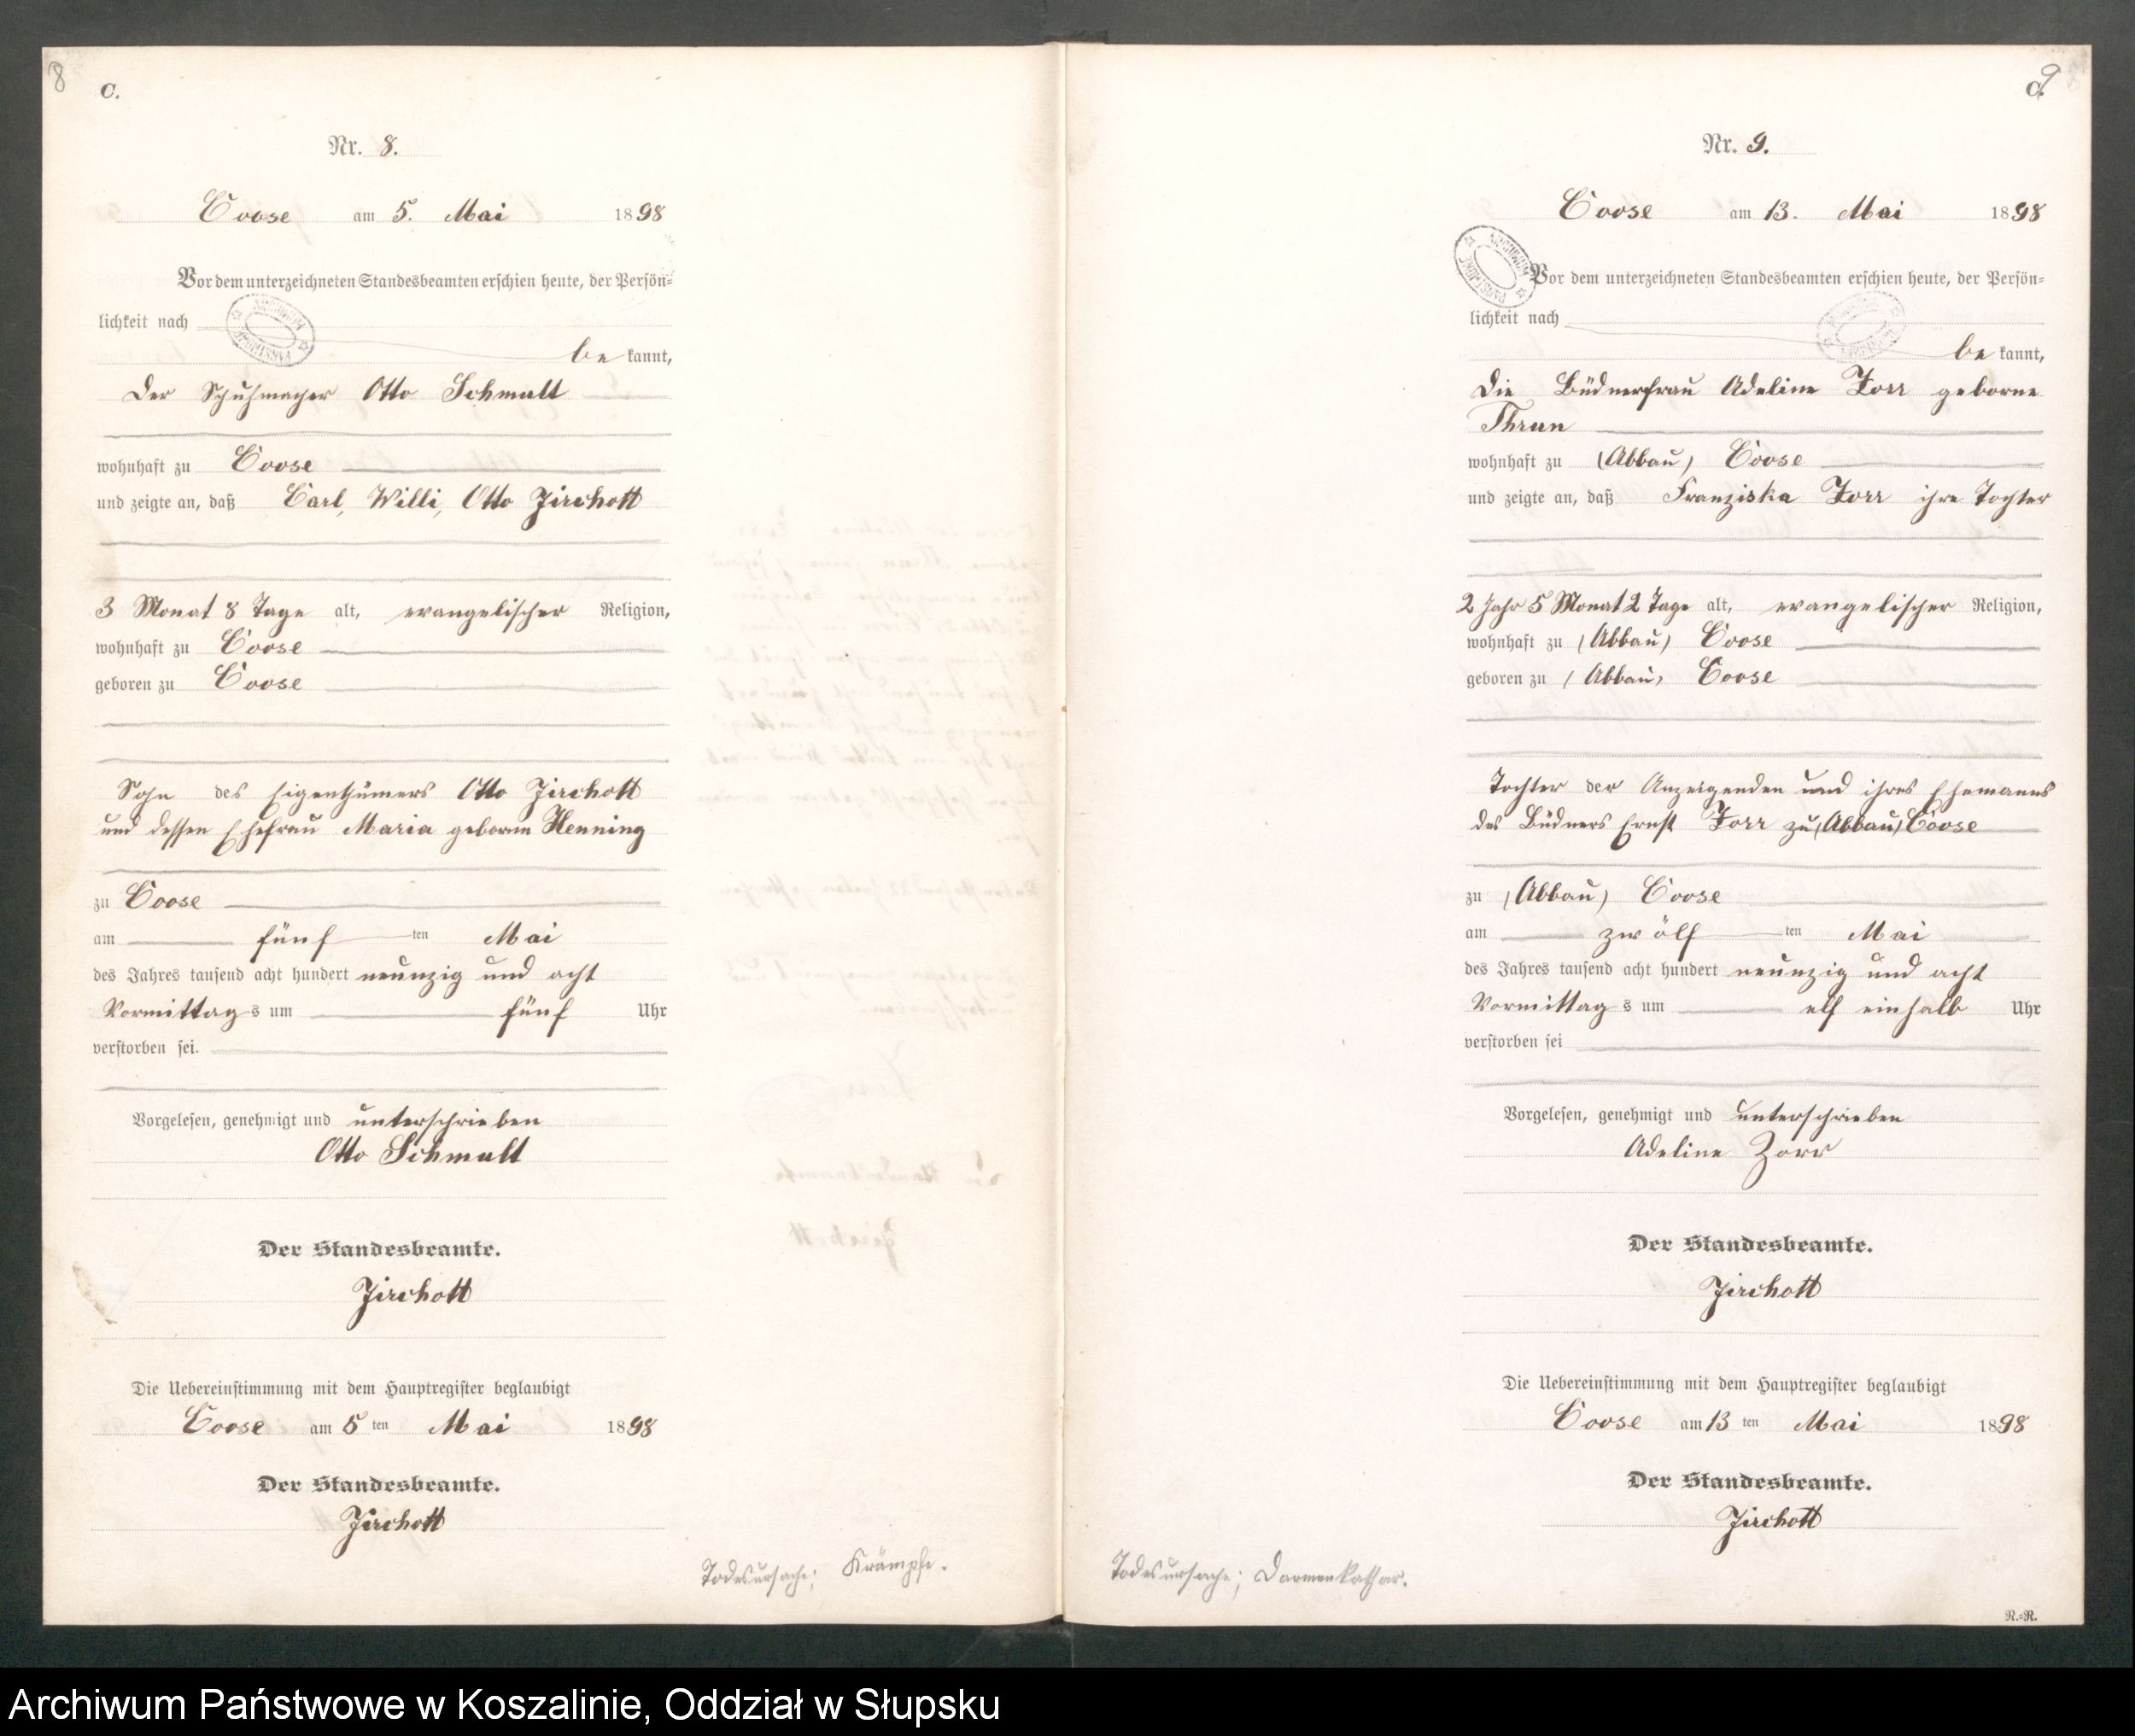 8
C.
Nr. 8.
Coose am 5. Mai 1898
Vor dem unterzeichneten Standesbeamten erschien heute, der Persön-
lichkeit nach
be kannt,
Der Schuhmacher Otto Schmalt
wohnhaft zu Coose
und zeigte an, daß Carl, Willi, Otto Jirchott
3 Monat 8 Tage alt, evangelischer Religion,
wohnhaft zu Coose
geboren zu Coose
Sohn des Eigenthümers Otto Jirchott
und dessen Ehefrau Maria geborne Henning
zu Coose
am fünf ten Mai
des Jahres tausend acht hundert neunzig und acht
Vormittag s um fünf Uhr
verstorben sei.
Vorgelesen, genehmigt und unterschrieben
Otto Schmalt
Der Standesbeamte.
Jirchott
Die Uebereinstimmung mit dem Hauptregister beglaubigt
Coose am 5 ten Mai 1898
Der Standesbeamte.
Jirchott
Todesursache; Krämpfe.
9
C.
Nr. 9.
Coose am 13. Mai 1898
Vor dem unterzeichneten Standesbeamten erschien heute, der Persön-
lichkeit nach
be kannt,
Die Büdnerfrau Adeline Zorr geborne
Thrun
wohnhaft zu (Abbau) Coose
und zeigte an, daß Franziska Zorr ihre Tochter
2 Jahr 5 Monat 2 Tage alt, evangelischer Religion,
wohnhaft zu (Abbau) Coose
geboren zu (Abbau) Coose
Tochter der Anzeigenden und ihres Ehemanns
des Büdners Ernst Zorr zu (Abbau) Coose
zu (Abbau) Coose
am zwölf ten Mai
des Jahres tausend acht hundert neunzig und acht
Vormittag s um elf einhalb Uhr
verstorben sei
Vorgelesen, genehmigt und unterschrieben
Adeline Zorr
Der Standesbeamte.
Jirchott
Die Uebereinstimmung mit dem Hauptregister beglaubigt
Coose am 13 ten Mai 1898
Der Standesbeamte.
Jirchott
Todesursache; Darmenkathar.
R.=R.
Archiwum Państwowe w Koszalinie, Oddział w Słupsku